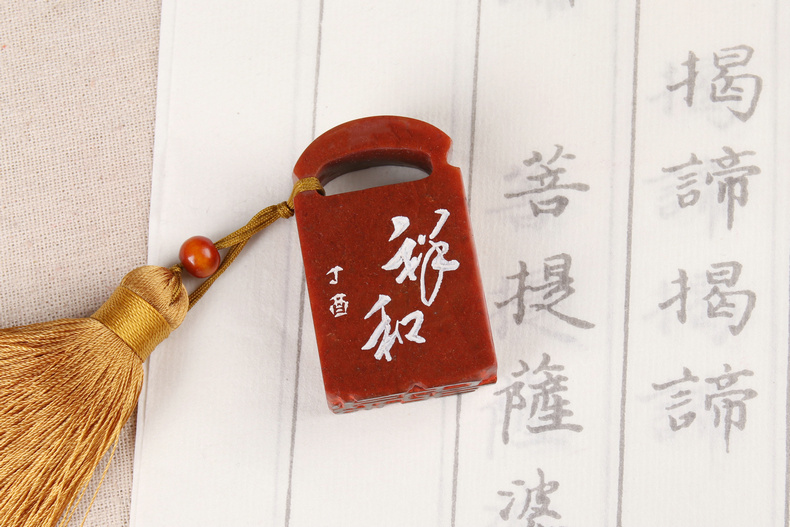 揭諦揭諦
菩提薩婆
祥和
丁酉